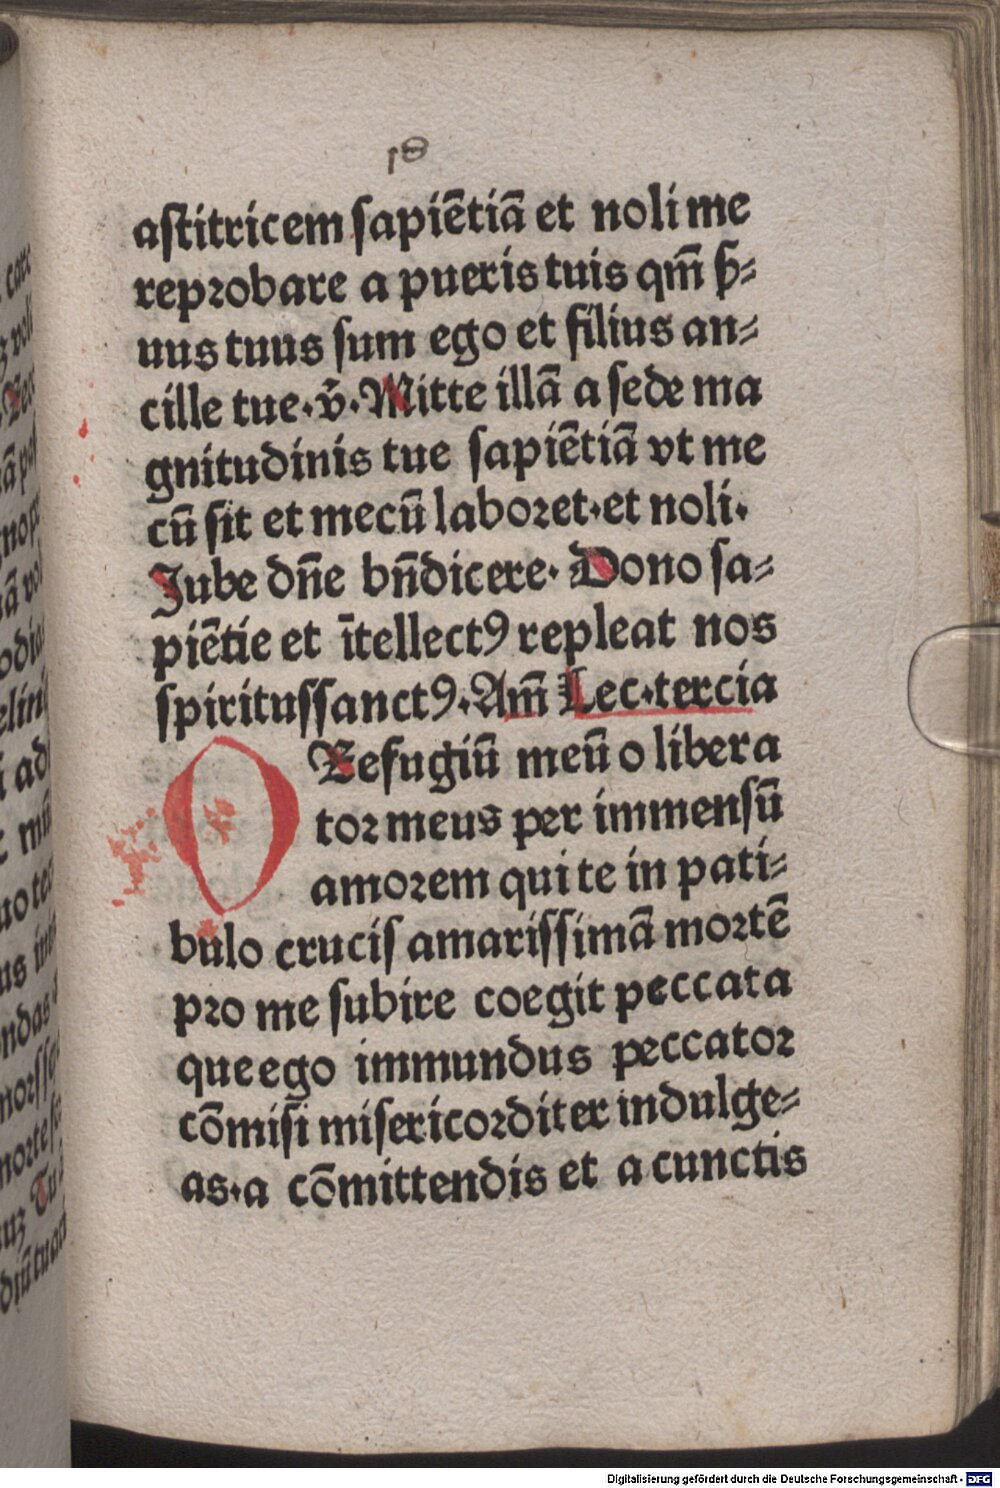 18
astitricem sapiētiā et noli me
reprobare a pueris tuis qm̄ ẜ⸗
uus tuus sum ego et filius an⸗
cille tue.v̄.Mitte illā a sede ma
gnitudinis tue sapiētiā vt me
cū sit et mecū laboret.et noli.
Jube dn̄e bn̄dicere. Dono sa⸗
piētie et ītellectꝰ repleat nos
spiritussanctꝰ.Am̄ Lec.tercia
O Refugiū meū o libera
tor meus per immensū
amorem qui te in pati⸗
bulo crucis amarissimā mortē
pro me subire coegit peccata
que ego immundus peccator
cōmisi misericorditer indulge⸗
as.a cōmittendis et a cunctis
Digitalisierung gefördert durch die Deutsche Forschungsgemeinschaft - DFG